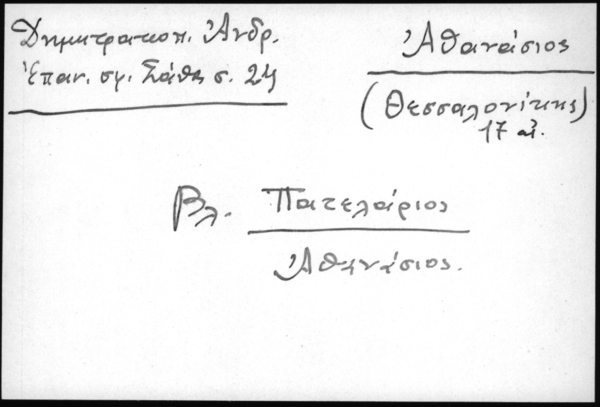 Δημητρακοπ. Ἀνδρ.
Ἐπαν. σφ. Σάθα σ. 24
Ἀθανάσιος
(Θεσσαλονίκης)
17 αἰ.
Βλ. Πατελάριος
Ἀθανάσιος.